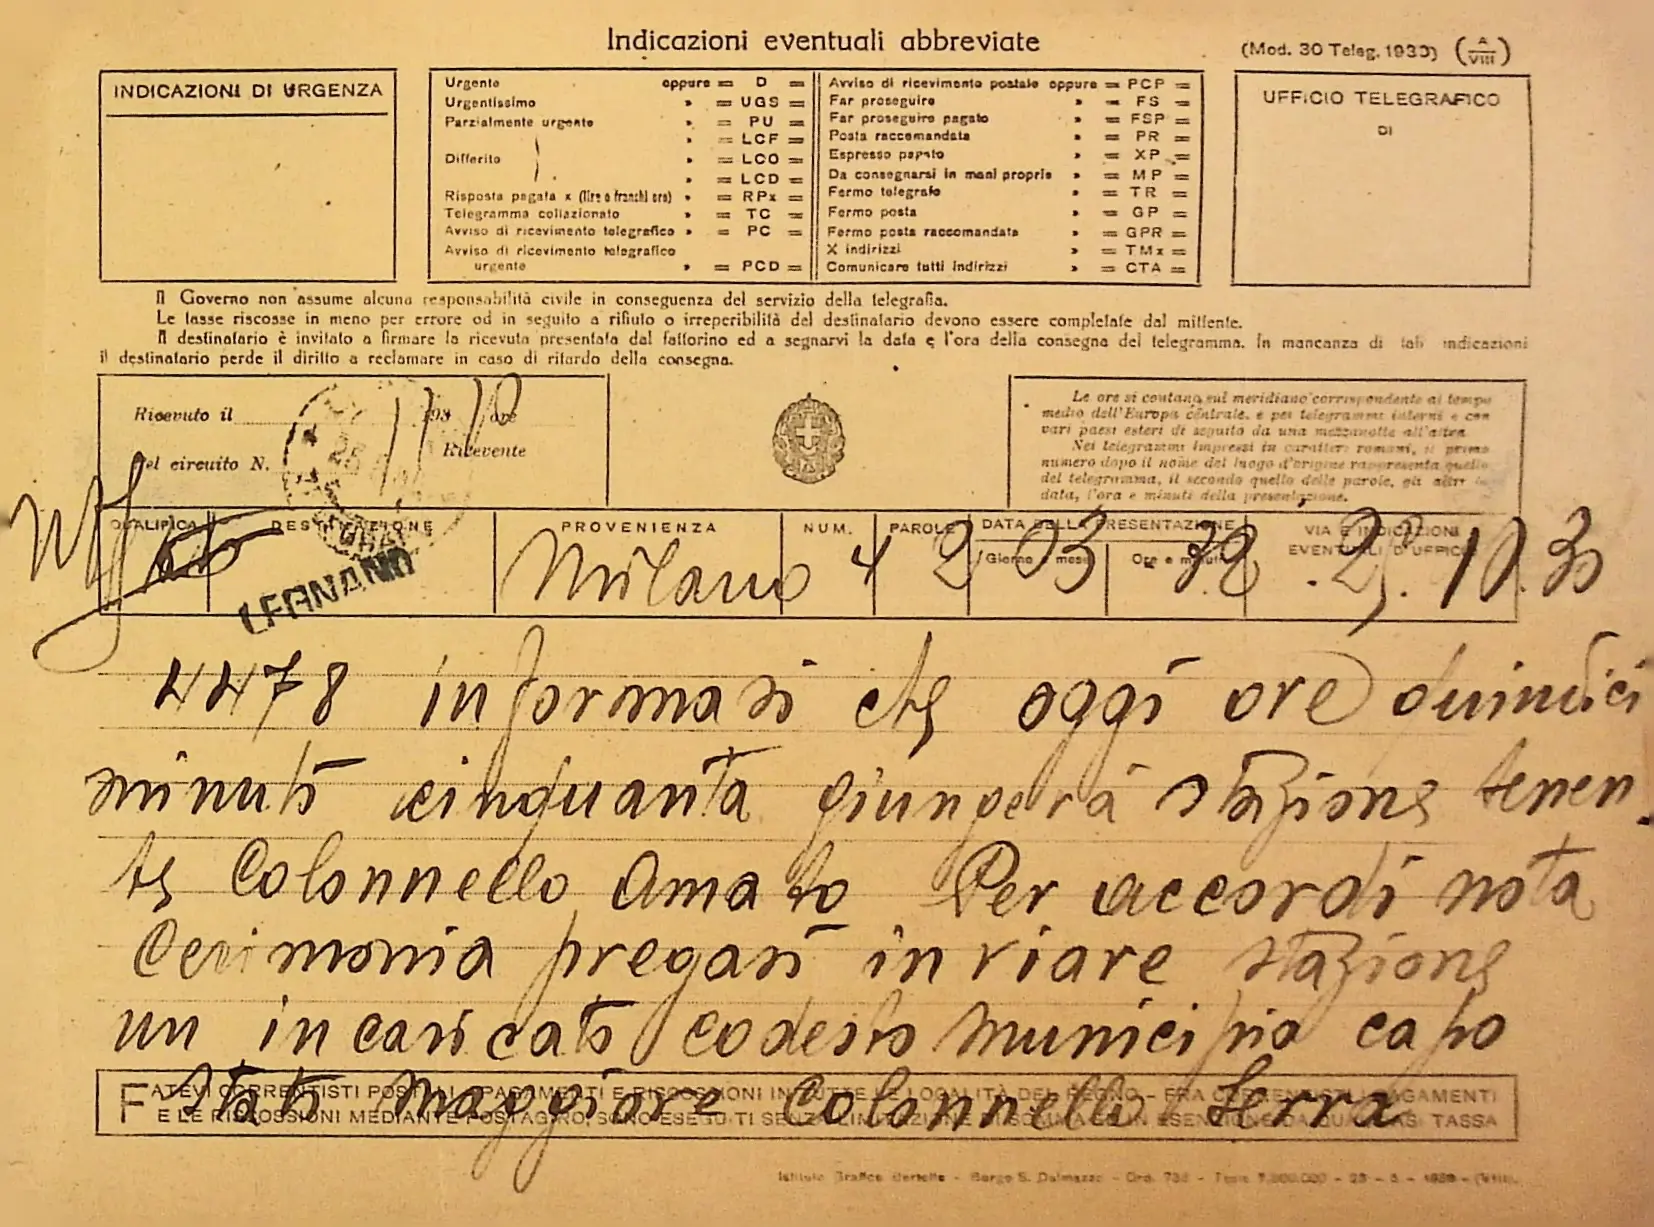 Indicazioni eventuali abbreviate
(Mod. 30 Teleg. 1930) (A/VIII)
INDICAZIONI DI URGENZA
Urgente oppure = D =
Urgentissimo » = UGS =
Parzialmente urgente » = PU =
» = LCF =
Differito » = LCO =
» = LCD =
Risposta pagata x (lire o franchi oro) » = RPx =
Telegramma collazionato » = TC =
Avviso di ricevimento telegrafico » = PC =
Avviso di ricevimento telegrafico
urgente » = PCD =
Avviso di ricevimento postale oppure = PCP =
Far proseguire » = FS =
Far proseguire pagato » = FSP =
Posta raccomandata » = PR =
Espresso pagato » = XP =
Da consegnarsi in mani proprie » = MP =
Fermo telegrafo » = TR =
Fermo posta » = GP =
Fermo posta raccomandata » = GPR =
X indirizzi » = TMx =
Comunicare tutti indirizzi » = CTA =
UFFICIO TELEGRAFICO
DI
Il Governo non assume alcuna responsabilità civile in conseguenza del servizio della telegrafia.
Le tasse riscosse in meno per errore od in seguito a rifiuto o irreperibilità del destinatario devono essere completate dal mittente.
Il destinatario è invitato a firmare la ricevuta presentata dal fattorino ed a segnarvi la data e l'ora della consegna del telegramma. In mancanza di tali indicazioni
il destinatario perde il diritto a reclamare in caso di ritardo della consegna.
Ricevuto il 193 ore
Pel circuito N. Ricevente
Le ore si contano sul meridiano corrispondente al tempo
medio dell'Europa centrale, e pei telegrammi interni e con
vari paesi esteri di seguito da una mezzanotte all'altra.
Nei telegrammi impressi in caratteri romani, il primo
numero dopo il nome del luogo d'origine rappresenta quello
del telegramma, il secondo quello delle parole, gli altri la
data, l'ora e minuti della presentazione.
QUALIFICA DESTINAZIONE PROVENIENZA NUM. PAROLE DATA DELLA PRESENTAZIONE VIA E INDICAZIONI
Giorno e mese Ore e minuti EVENTUALI D'UFFICIO
LEGNANO
Milano
4478 informasi che oggi ore quindici
minuti cinquanta giungerà stazione tenen-
te Colonnello Amato Per accordi nota
Cerimonia pregasi inviare stazione
un incaricato codesto Municipio capo
Stato Maggiore Colonnello Serra
FATEVI CORRENTISTI POSTALI - PAGAMENTI E RISCOSSIONI IN TUTTE LE LOCALITÀ DEL REGNO - FRA CORRENTISTI PAGAMENTI
E LE RISCOSSIONI MEDIANTE POSTAGIRO, SONO ESEGUITI SENZA LIMITAZIONE DI SOMMA ED IN ESENZIONE DA QUALSIASI TASSA